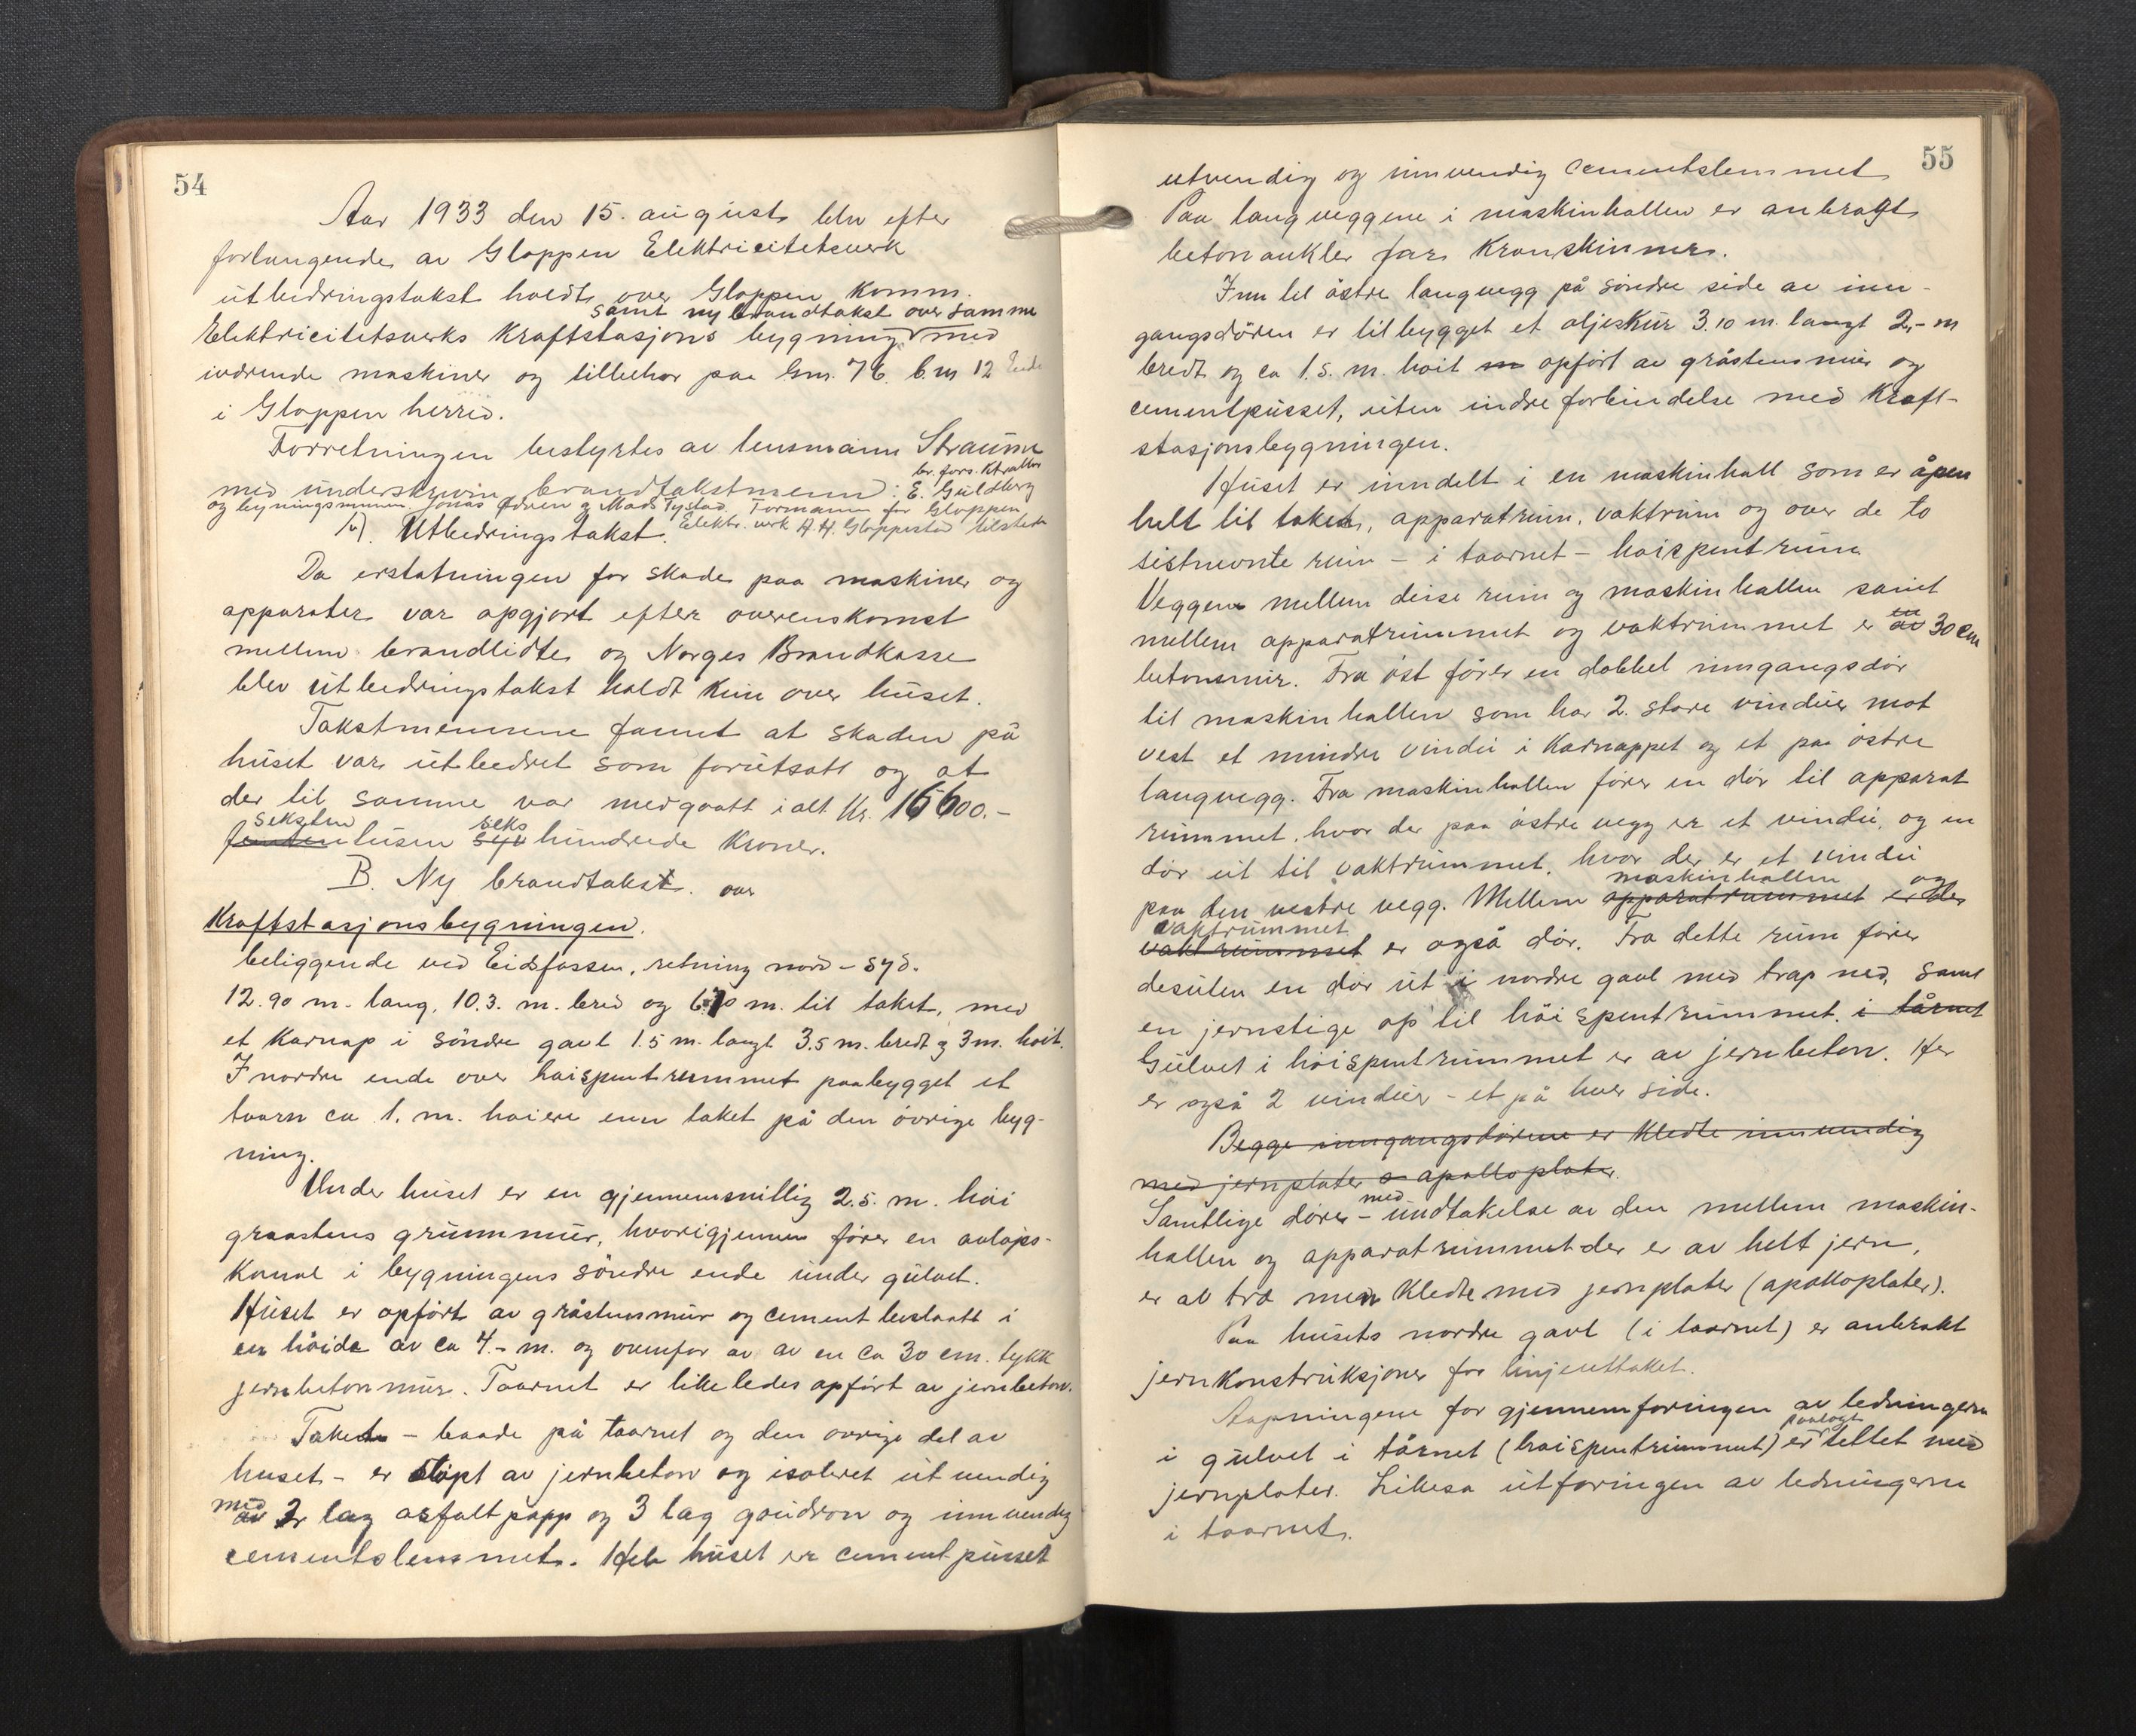 54
Aar 1933 den 15. august blev efter
forlangende av Gloppen Elektricitetsverk
utbedringstakst holdt over Gloppen Komm.
samt ny brandtakst over samme
Elektricitetsverks Kraftstasjons bygning med
indrende maskiner og tilbehør paa Gnr. 76 b.nr 12 Eide
i Gloppen herred.
Forretningen bestyrtes av lensmann Straume
br. fors.
med underskrivne brandtakstmenn: E. Guldberg
og bygningsmennene Jonas Ødven og Mads Tystad. Formann for Gloppen
Elektr. verk A.H. Gloppestad tilstede
A). Utbedringstakst.
Da erstatningen for skade paa maskiner og
apparater var opgjort efter overenskomst
mellem brandlidte og Norges Brandkasse
blev utbedringstakst holdt kun over huset.
Takstmennene fannt at skaden på
huset var utbedret som forutsatt og at
der til samme var medgaatt ialt Kr. 16600.-
seksten seks
femten tusen syv hundrede Kroner.
B. Ny brandtakst. over
Kraftstasjonsbygningen.
beliggende ved Eidsfossen, retning nord - syd.
12.90 m. lang, 10.3. m. bred og 6.70 m. til taket, med
et Karnap i söndre gavl 1.5 m. langt 3.5 m. bredt og 3 m. høit.
I nordre ende over høispentrummet paabygget et
taarn ca 1. m. høiere enn taket på den övrige byg-
ning.
Under huset er en gjennemsnittlig 2.5. m. høi
graastens grunnmur, hvorigjennem fører en avløps-
Kanal i bygningens söndre ende under gulvet.
Huset er opført av gråstensmur og cement bestaatt i
en höide av ca 4.- m. og ovenfor av av en ca 30 cm. tykk
jernbetonmur. Taarnet er likeledes opfört av jernbeton.
Taket - baade på taarnet og den øvrige del av
huset - er støpt av jernbeton og isoleret utvendig
med
av 2 lag asfaltpapp og 3 lag goudron og innvendig
cementslemmet. Hele huset er cementpusset
55
utvendig og innvendig cementslemmet
Paa langveggene i maskinhallen er anbragt
betonankler for Kranskinner.
Inn til östre langvegg på söndre side av inn-
gangsdören er tilbygget et oljeskur 3.10 m. langt 2,- m
bredt og ca 1.5. m. høit m opfört av gråstensmur og
cementpusset, uten indre forbindelse med Kraft-
stasjonsbygningen.
Huset er inndelt i en maskinhall som er åpen
helt til taket, apparatrum, vaktrum og over de to
sistnevnte rum - i taarnet - høispentrum
Veggene mellem disse rum og maskinhallen samt
mellem apparatrummet og vaktrummet er av en 30 cm
betonmur. Fra öst förer en dobbel inngangsdör
til maskinhallen som har 2. store vinduer mot
vest et mindre vindu i Karnappet og et paa östre
langvegg. Fra maskinhallen förer en dör til apparat
rummet, hvor der paa östre vegg er et vindu, og en
dör ut til vaktrummet, hvor der er et vindu
maskinhallen og
paa den vestre vegg. Mellem apparatrummet er der
vaktrummet
vaktrummet er også dör. Fra dette rum förer
desuten en dör ut i nordre gavl med trap ned, samt
en jernstige op til höispentrummet. i tårnet
Gulvet i höispentrummet er av jernbeton. Her
er også 2 vinduer - et på hver side.
Begge inngangsdörene er Kledte innvendig
med jernplater o apolloplater.
med
Samtlige dører - undtakelse av den mellem maskin-
hallen og apparatrummet der er av helt jern,
er av træ men Kledte med jernplater (apolloplater).
Paa husets nordre gavl (i taarnet) er anbrakt
jernkonstruksjoner for linjeuttaket.
Aapningene for gjennemføringen av ledningerne
paalagt
i gulvet i tårnet (høispentrummet) er tettet med
jernplater. Likesa utføringen av ledningerne
i taarnet.